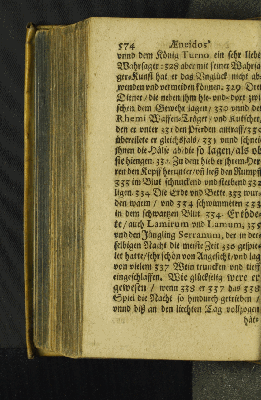 574 Æneidos
vnnd dem König Turno ein sehr lieber
Wahrsager: 328 aber mit seiner Wahrsa-
ger-Kunst hat er das Vnglück nicht ab-
wenden vnd vermeiden können. 329 Drey
Diener / die neben ihm hie- vnd dort zwi-
schen dem Gewehr lagen / 330 vnnd deß
Rhemi Waffen-Träger / vnd Kutscher,
den er vnter 331 den Pferden antraff / 330
überellete er gleichfals / 331 vnnd schneit
ihnen die Hälse ab / die so lagen / als ob
sie hiengen. 332 Zu dem hieb er ihrem Her-
ren den Kopff herunter / vñ ließ den Rumpff
333 im Blut schnuckend vnd sterbend 332
ligen. 334 Die Erd vnd Bette 333 wur-
den warm / vnd 334 schwummeten 333
in dem schwartzen Blut. 334 Er töde-
te / auch Lamirum vnd Lamum, 335
vnd den Jüngling Serranum, der in der-
selbigen Nacht die meiste Zeit 336 gespie-
let hatte / sehr schön von Angesicht / vnd lag
von vielem 337 Wein truncken vnd tieff
eingeschlaffen. Wie glückselig were er
gewesen / wenn 338 er 337 das 338
Spiel die Nacht so hindurch getrieben /
vnnd biß an den liechten Tag vollzogen
hät-